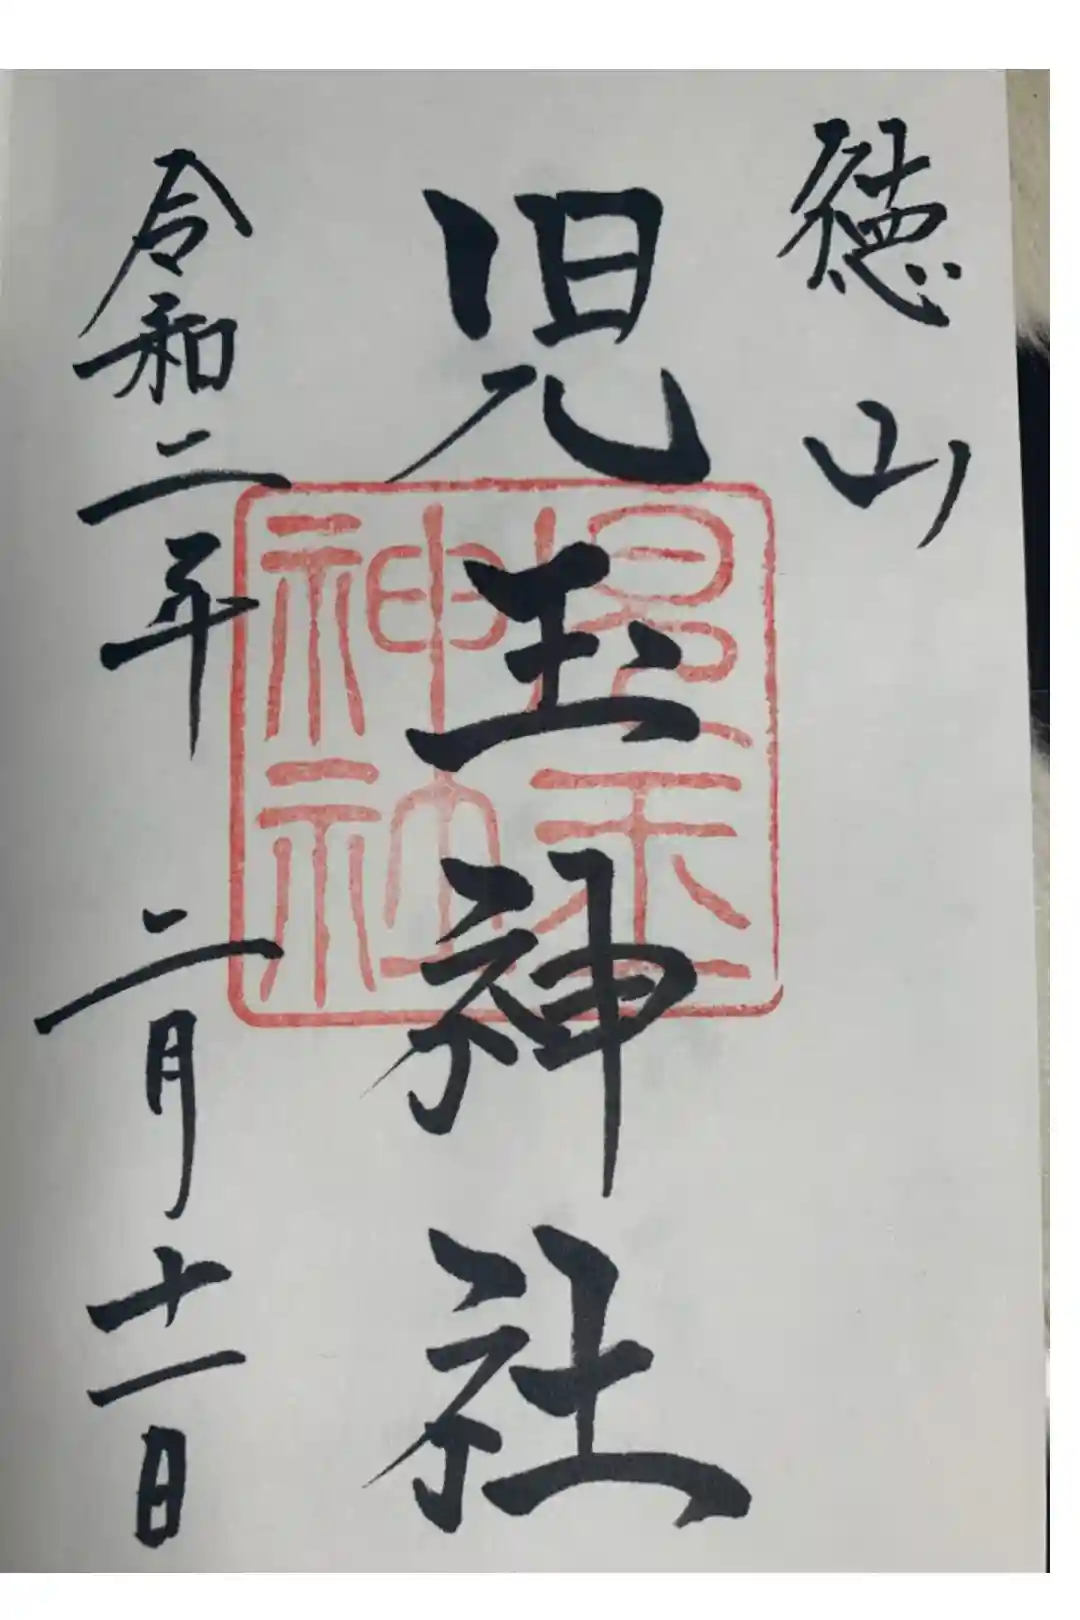 徳山
児玉神社
児玉
神社
令和二年 二月十一日